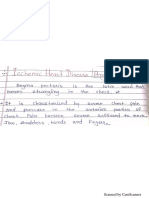 Ischemic Heart Disease
Angina pectoris is the latin word that
means strangling in the chest.
It is characterized by severe chest pain
and pressure in the anterior portion of
Chest. Pain become severe outward to neck
Jaw, shoulders, hands and Fingers.
Scanned by CamScanner